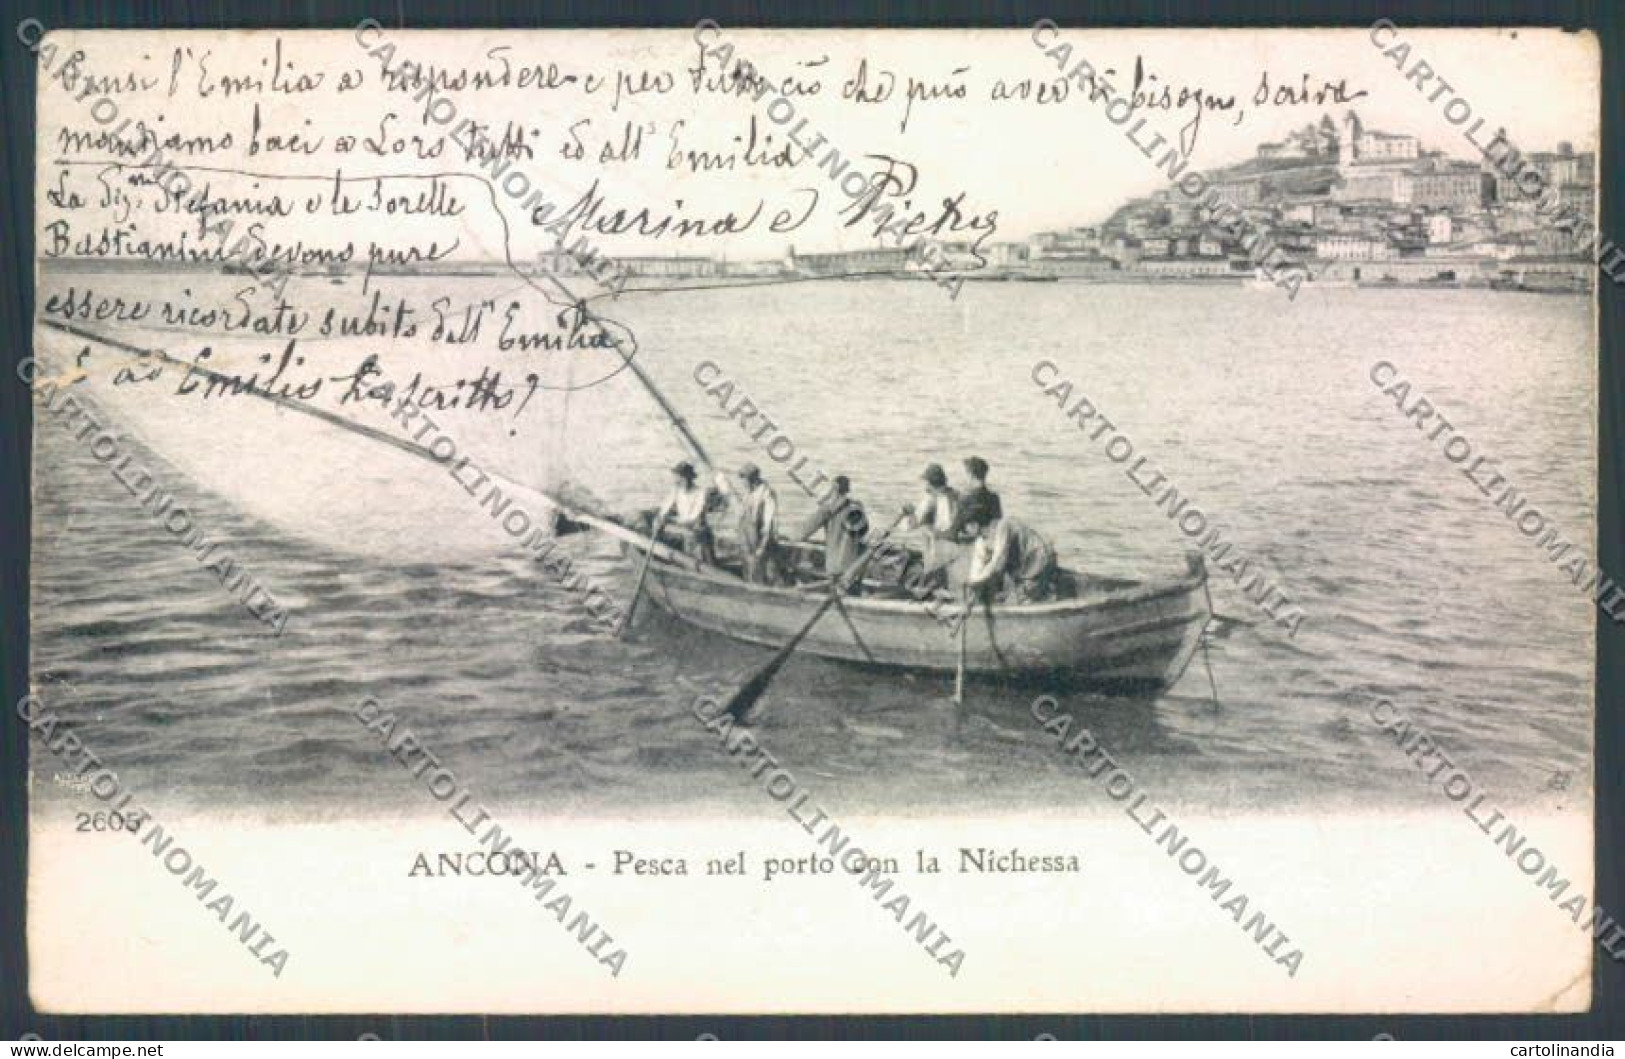 Pensi l'Emilia a rispondere e per tutto ciò che può aver di bisogno, scriva
mandiamo baci a Loro tutti ed all'Emilia
Marina e Pietro
La Sig.na Stefania e le Sorelle
Bastianini devono pure
essere ricordate subito dall'Emilia
E ad Emilio ha scritto?
2605
ANCONA - Pesca nel porto con la Nichessa
CARTOLINOMANIA
www.delcampe.net
cartolinandia